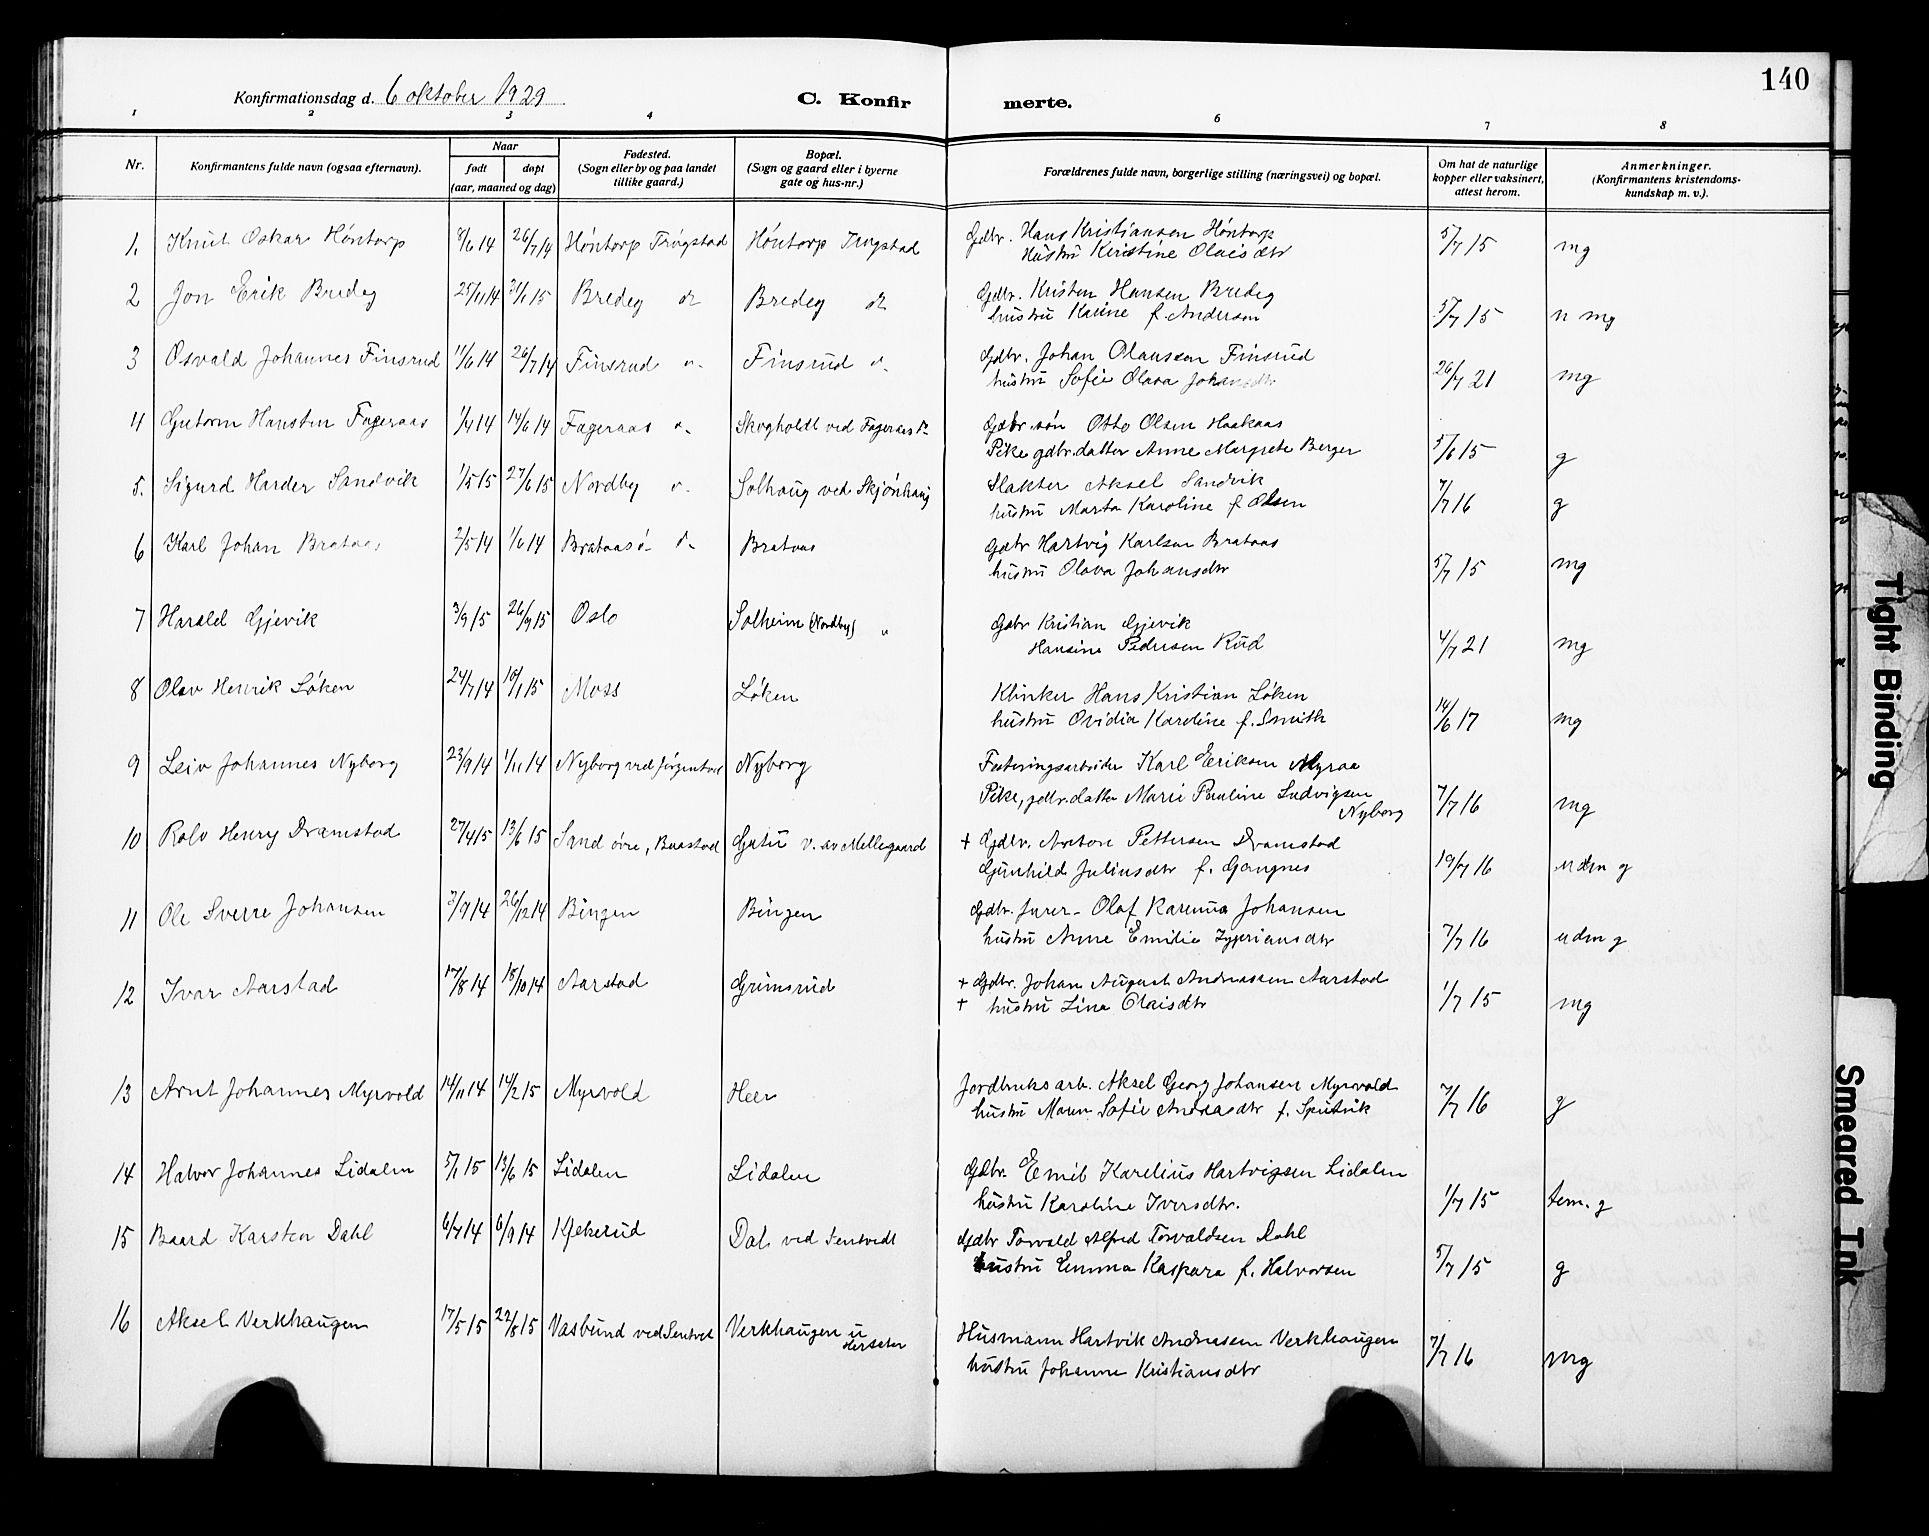 140
Konfirmationsdag d. 6 oktober 1929 C. Konfir merte.
1 2 3 4 6 7 8
Nr. Konfirmantens fulde navn (ogsaa efternavn). Naar født døpt (aar, maaned og dag) Fødested. (Sogn eller by og paa landet tillike gaard.) Bopæl. (Sogn og gaard eller i byerne gate og hus-nr.) Forældrenes fulde navn, borgerlige stilling (næringsvei) og bopæl. Om hat de naturlige kopper eller vaksinert, attest herom. Anmerkninger. (Konfirmantens kristendoms-kundskap m. v.).
1. Knut Oskar Höntorp 8/6 14 26/7 14 Höntorp Trögstad Höntorp Trögstad Gdbr. Hans Kristiansen Höntorp
hustru Kirstine Olaisdtr 5/7 15 mg
2 Jon Erik Bredeg 25/11 14 31/1 15 Bredeg do Bredeg do Gdbr. Kristen Hansen Bredeg
hustru Karine f. Andersen 5/7 15 n mg
3 Osvald Johannes Finsrud 11/6 14 26/7 14 Finsrud Finsrud Gdbr. Johan Olaussen Finsrud
hustru Sofie Olava Johansdtr 26/7 21 mg
4 Gutorm Hansten Fageraas 1/4 14 14/6 14 Fageraas Skogholdt ved Fageraas Gdbr. søn Otto Olsen Haakaas
Pike gdbr. datter Anne Margrete Berger 5/6 15 g
5. Sigurd Harder Sandvik 1/5 15 27/6 15 Nordby Solhaug ved Skjönhaug Slakter Aksel Sandvik
hustru Marta Karoline f. Olsen 7/7 16 g
6 Karl Johan Brataas 2/5 14 1/6 14 Brataas Brataas Gdbr Hartvig Karlsen Brataas
hustru Olava Johansdtr 5/7 15 mg
7 Harald Gjevik 3/9 15 26/9 15 Oslo Solheim (Nordby) " Gdbr Kristian Gjevik
Hansine Pedersen Rud 4/7 21 mg
8 Olav Henrik Löken 24/7 14 10/1 15 Moss Löken Klinker Hans Kristian Löken
hustru Ovidia Karoline f. Smith 14/6 17 mg
9 Leiv Johannes Nyborg 23/9 14 1/11 14 Nyborg ved Jörgentvet Nyborg Karl Eriksen Myraa
Pike, gdbr. datter Marie Pauline Ludvigsen
Nyborg 7/7 16 mg
10 Rolv Henry Dramstad 27/4 15 13/6 15 Sand övre, Baastad Gutu v. av Mellegaard + Gdbr. Anton Pettersen Dramstad
Gunhild Juliusdtr f. Gangnes 19/7 16 udm g
11 Ole Sverre Johansen 3/9 14 26/12 14 Bingen Bingen Gdbr. Olaf Karenius Johansen
hustru Anne Emilie Zypriansdtr 7/7 16 udm g
12 Ivar Aarstad 17/8 14 18/10 14 Aarstad Grimsrud + Gdbr. Johan August Andreassen Aarstad
+ hustru Lina Olaisdtr 1/7 15 mg
13 Arnt Johannes Myrvold 14/11 14 14/2 15 Myrvold Heer Jordbruksarb. Aksel Georg Johansen Myrvold
hustru Maren Sofie Andreasdtr f. Sputvik 7/7 16 g
14 Halvor Johannes Lidalen 5/1 15 13/6 15 Lidalen Lidalen Gdbr. Emil Karelius Hartvigsen Lidalen
hustru Karoline Iversdtr. 1/7 15 tem. g
15 Baard Karsten Dahl 6/7 14 6/9 14 Kjekerud Dal ved Sentvedt Gdbr Torvald Alfred Torvaldsen Dahl
hustru Emma Kaspara f. Halvorsen 5/7 15 g
16 Aksel Verkhaugen 17/5 15 22/8 15 Vasbund ved Sentvet Verkhaugen u Herseter Husmann Hartvik Andresen Verkhaugen
hustru Johanne Kristiansdtr 7/7 16 mg
Tight Binding
Smeared Ink